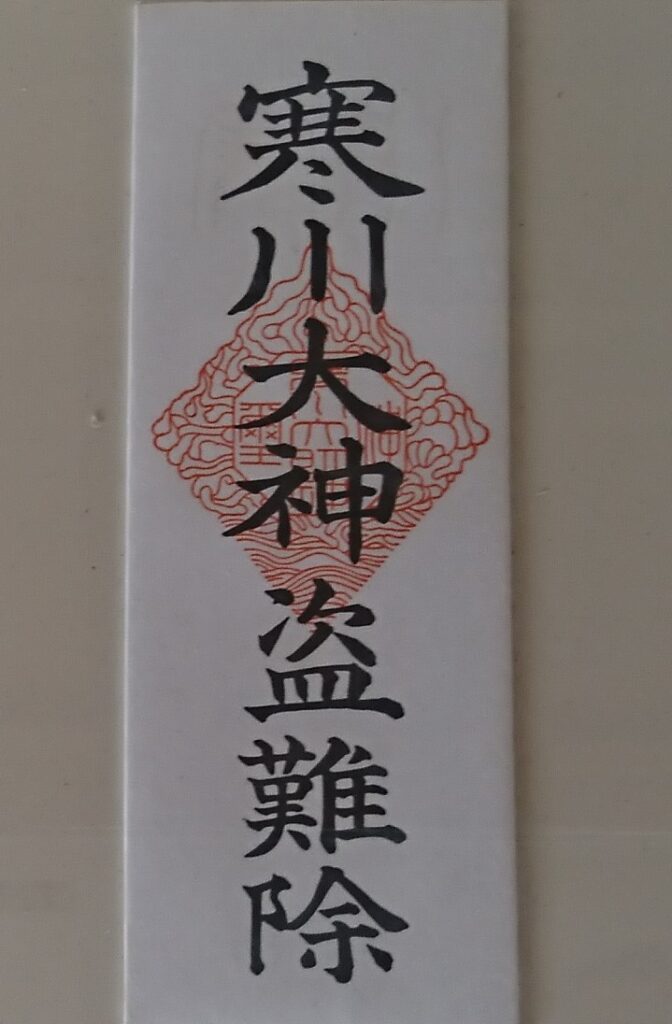 寒川大神盗難除